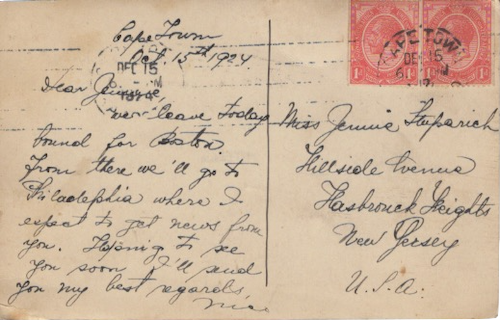 Cape Town
Oct 15th 1924
Dear Jennie
we leave today
bound for Boston.
From there we'll go to
Philadelphia where I
expect to get news from
you. Hoping to see
you soon I'll send
you my best regards
CAPE TOWN
DEC 15
1924
1d 1d
Miss Jennie
Hillside Avenue
Hasbrouck Heights
New Yersey
U.S.A.